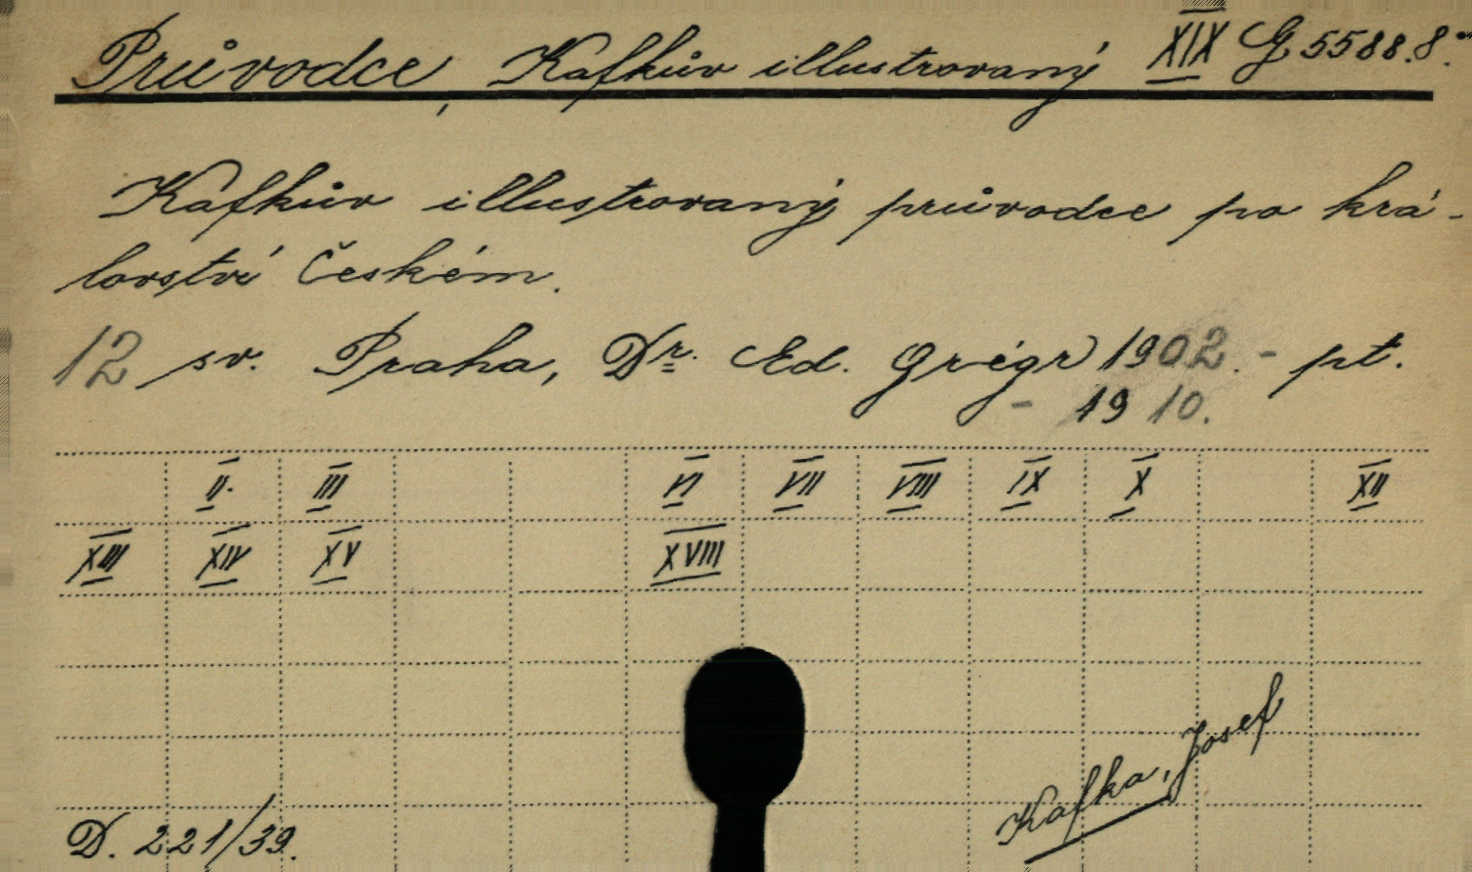 Průvodce, Kafkův illustrovaný XIX G 5588.8.
Kafkův illustrovaný průvodce po krá-
lovství Českém.
12 sv. Praha, Dr. Ed. Grégr 1902. - pt.
- 1910.
II. III VI VII VIII IX X XII
XIII XIV XV XVIII
Kafka, Josef
D. 221/39.